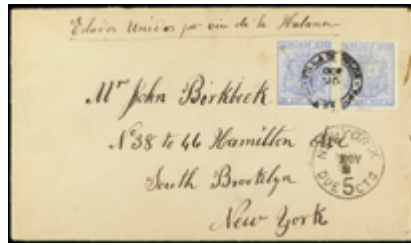 Estados Unidos por via de la Habana
Mr John Birkbeck
Nº 38 to 46 Hamilton Ave
South Brooklyn
New York
NEW YORK
NOV
DUE 5 CTS